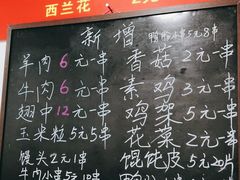 西兰花 2元一
新增 鸭胗小串5元8串
羊肉6元一串 香菇2元一串
牛肉6元一串 素鸡3元一串
翅中12元一串 鸡架5元一
玉米粒5元5串 花菜2元一
馒头2元1串 馄饨皮5元20片
牛肉小串5元10串 鸭